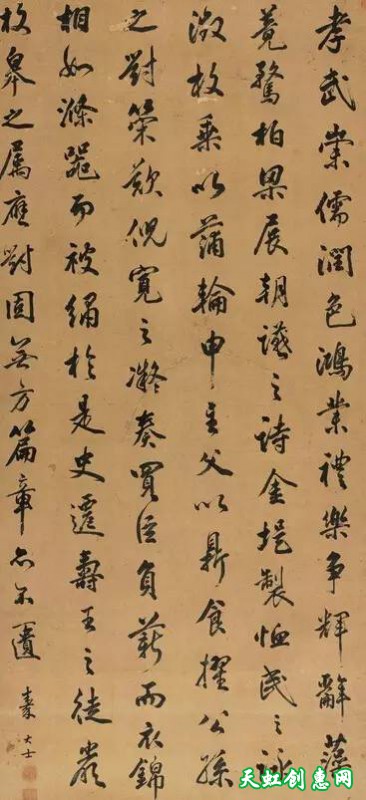 孝武崇儒潤色鴻業禮樂爭輝辭藻
竟騖柏梁展朝讌之詩金堤製恤民之詠
徵枚乘以蒲輪申主父以鼎食擢公孫
之對策歎倪寬之擬奏買臣負薪而衣錦
相如滌器而被繡於是史遷壽王之徒嚴
枚皋之属應對固無方篇章亦不匱
大士
天虹创惠网